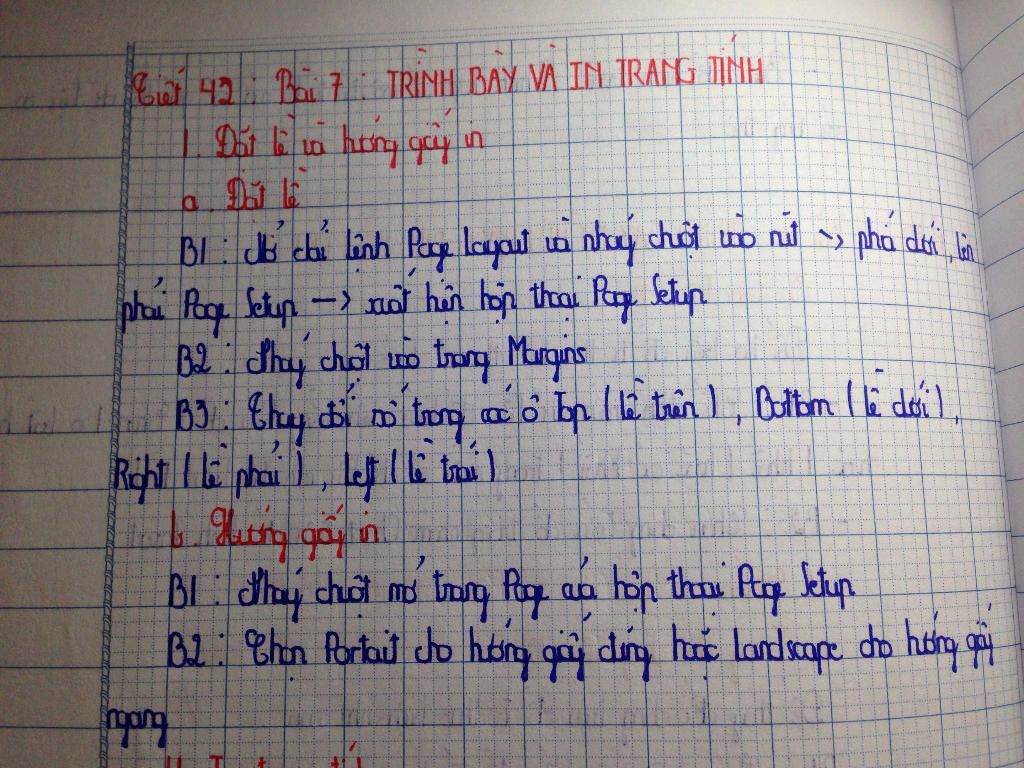 Tiết 42 : Bài 7 : TRÌNH BÀY VÀ IN TRANG TÍNH
1. Đặt lề và hướng giấy in
a. Đặt lề
B1 : Mở dải lệnh Page Layout và nháy chuột vào nút -> phía dưới, bên
phải Page Setup -> xuất hiện hộp thoại Page Setup
B2 : Nháy chuột vào trang Margins
B3 : Thay đổi số trong các ô Top (lề trên), Bottom (lề dưới),
Right (lề phải), Left (lề trái)
b. Hướng giấy in
B1 : Nháy chuột mở trang Page của hộp thoại Page Setup
B2 : Chọn Portait cho hướng giấy đứng hoặc landscape cho hướng giấy
ngang